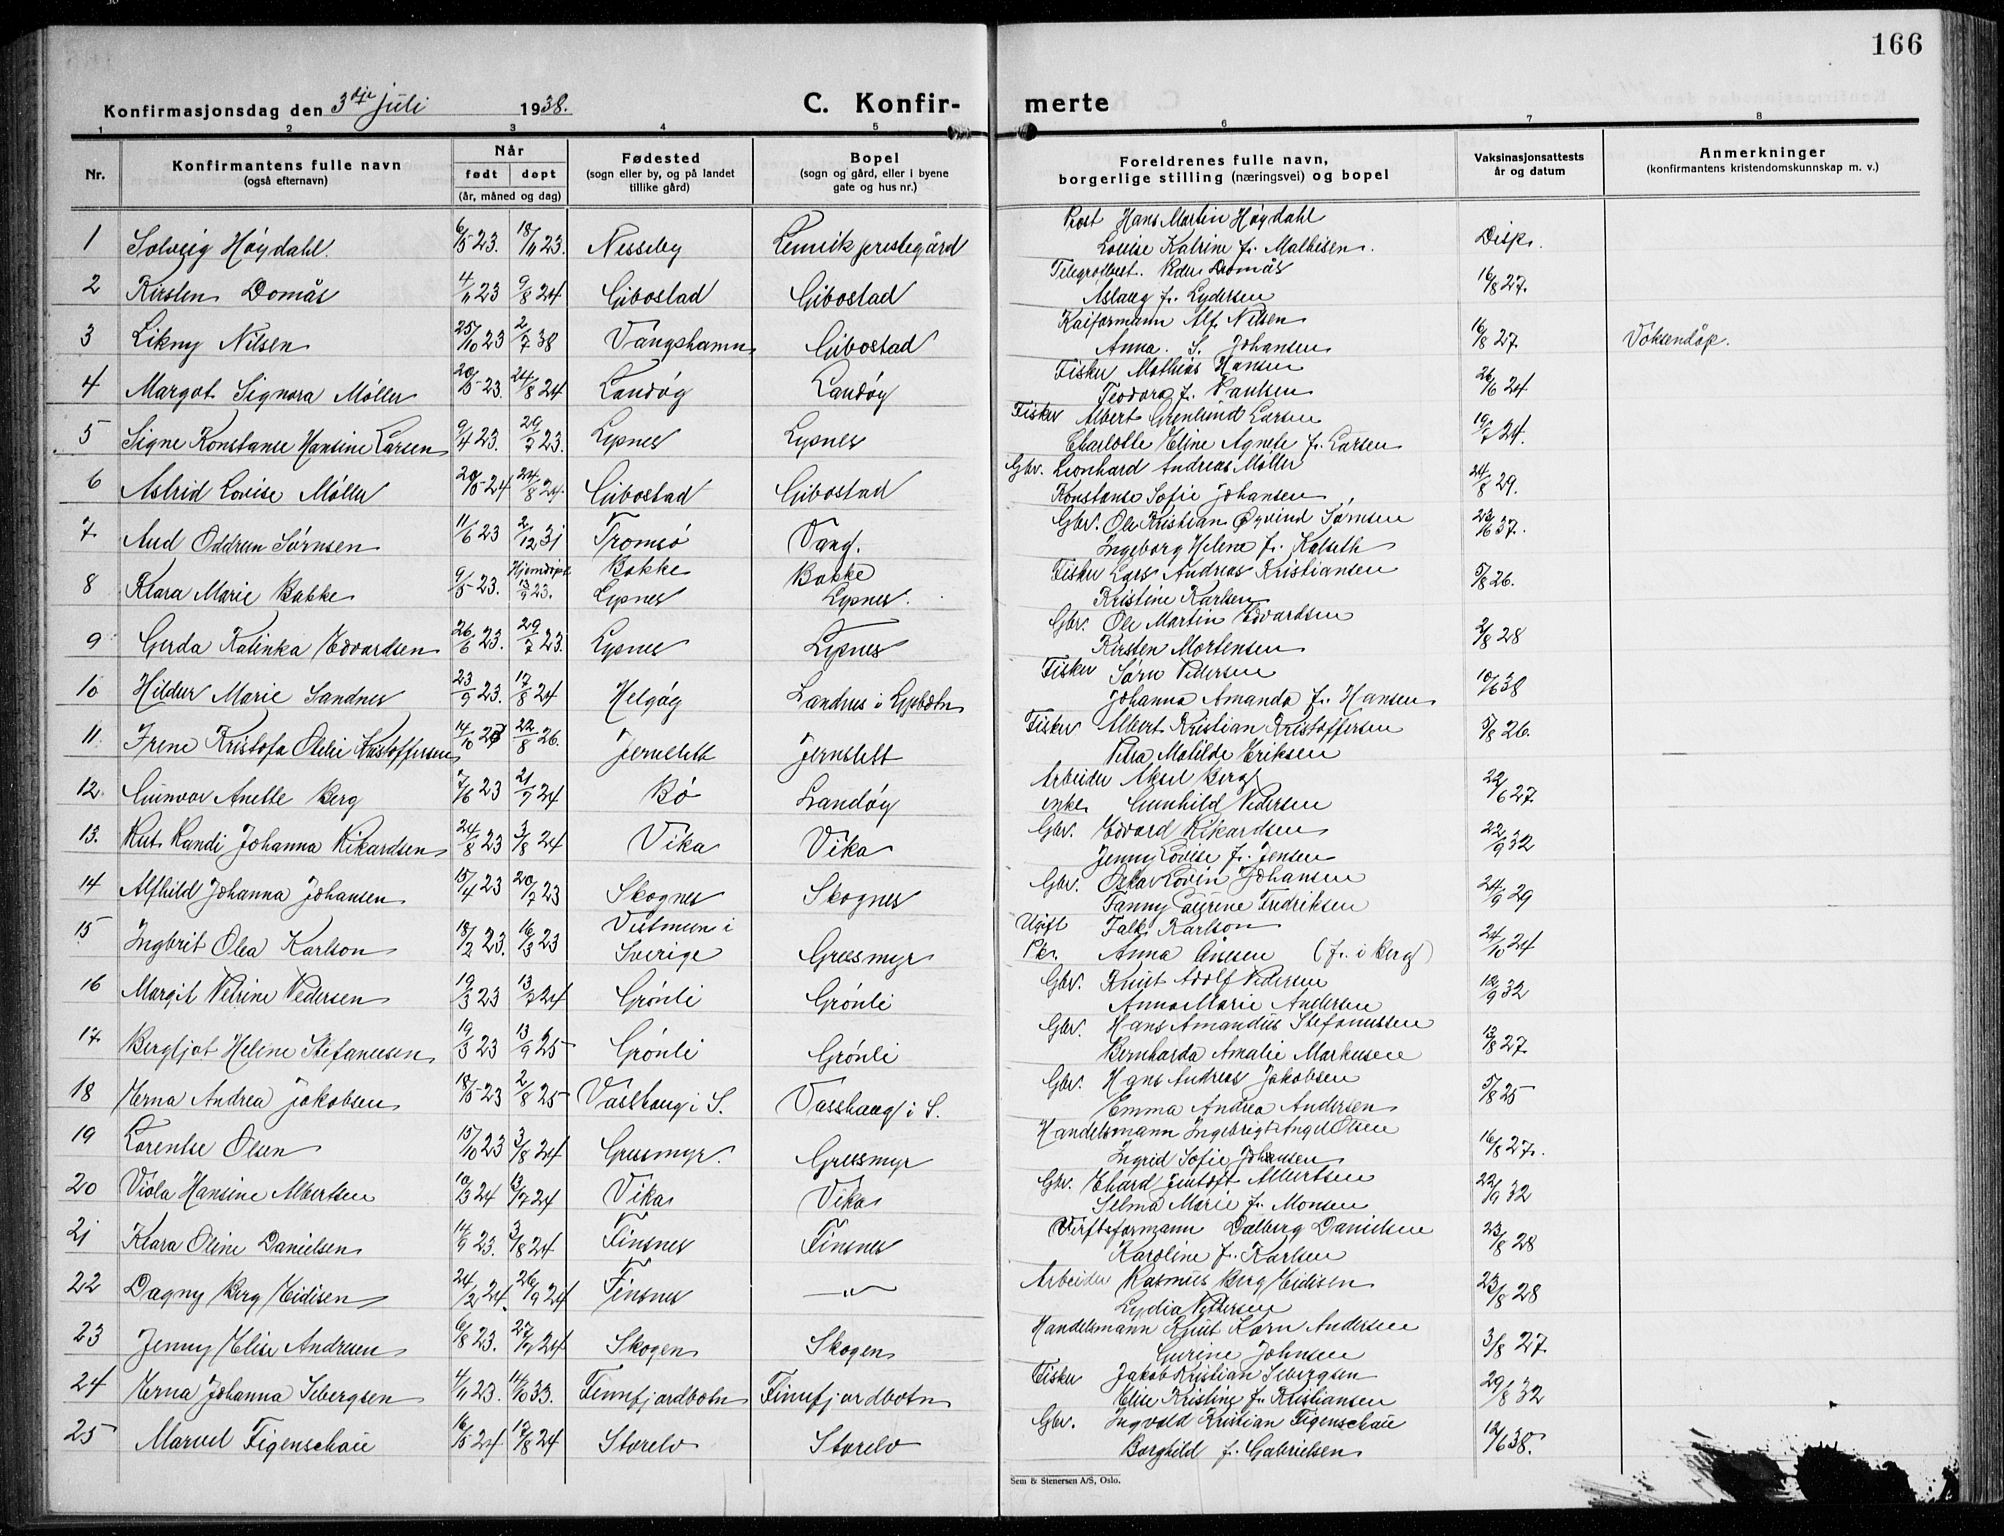 166
Konfirmasjonsdag den 3dje juli 1938.
C. Konfir-
merte
1 2 3 4 5 6 7 8
Nr.
Konfirmantens fulle navn
(også efternavn)
Når
født døpt
(år, måned og dag)
Fødested
(sogn eller by, og på landet
tillike gård)
Bopel
(sogn og gård, eller i byene
gate og hus nr.)
Foreldrenes fulle navn,
borgerlige stilling (næringsvei) og bopel
Vaksinasjonsattests
år og datum
Anmerkninger
(konfirmantens kristendomskunnskap m. v.)
1 Solveig Høydahl 6/5 23. 18/11 23. Nesseby Lenvik prestegård Prost Hans Martin Høydahl Disp.
Lovise Katrine f. Mathisen.
2 Kirsten Domås 4/11 23 9/8 24 Gibostad Gibostad Telegrafbest. Peder Domås 16/8 27.
Aslaug f. Lydersen
3 Likny Nilsen 25/10 23 2/7 38 Vangshamn Gibostad Kaiformann Alf Nilsen 16/8 27 Voksendåp.
Anna. S. Johansen
4 Margot Signora Møller 20/5 23. 24/8 24 Landøy Landøy Fisker Mathias Hansen 26/6 24
Teodora f. Paulsen
5 Signe Konstanse Hansine Larsen 9/4 23. 29/7 23. Lysnes Lysnes Fisker Albert Grenlund Larsen 19/7 24.
Charlotte Eline Agnete f. Larsen
6 Astrid Lovise Møller 20/5 24 24/8 24. Gibostad Gibostad Gbr. Leonhard Andreas Møller 24/8 29.
Konstanse Sofie Johansen
7 Aud Oddrun Sørnsen 11/6 23 2/12 31 Tromsø Vang. Gbr. Ole Kristian Øyvind Sørnsen 23/6 37.
Ingeborg Helene f. Kalseth
8 Klara Marie Bakke 9/5 23. Hjemdøpt 13/9 23. Bakke Lysnes Bakke Lysnes. Fisker Lars Andreas Kristiansen 5/8 26.
Kristine Karlsen
9 Gerda Kalinka Edvardsen 26/6 23. 29/7 23. Lysnes Lysnes Gbr. Ole Martin Edvardsen 2/8 28
Kirsten Mortensen
10 Hildur Marie Sandnes 23/9 23. 17/8 24 Helgøy Sandnes i Lysbotn Fisker Sørn Pedersen 10/6 38
Johanna Amanda f. Hansen
11. Irene Kristofa Otelie Kristoffersen 14/10 23 22/8 26. Jernslett Jernslett Fisker Albert Kristian Kristoffersen 5/8 26.
Petra Matilde Eriksen
12. Gunvor Anette Berg 7/6 23 21/9 24 Bø Landøy Arbeider Aksel Berg 22/6 27.
enke Gunhild Pedersen
13. Rut Randi Johanna Rikardsen 24/8 23 3/8 24 Vika Vika Gbr. Edvard Rikardsen 22/9 32
Jenny Lovise f. Jensen
14 Alfhild Johanna Johansen 15/4 23 20/7 23 Skognes Skognes Gbr. Oskar Edvin Johansen 24/9 29
Fanny Laurine Fredriksen
15 Ingbrit Olea Karlson 18/2 23. 16/3 23 Vestmeen i Sverige Greesmyr Ugift Falk Karlson 24/10 24
Pk. Anna Anesen (f. i Berg)
16 Margit Petrine Pedersen 19/3 23 13/7 24 Grønli Grønli Gbr. Knut Adolf Pedersen 12/9 32
Anna Marie Andersen
17. Bergljot Helene Stefanussen 19/3 23 13/9 25 Grønli Grønli Gbr. Hans Amandus Stefanussen 13/8 27.
Bernharda Amalie Markusen
18 Erna Andrea Jakobsen 18/5 23 2/8 25 Vasshaug i S. Vasshaug i S. Gbr. Hans Andreas Jakobsen 5/8 25
Emma Andrea Andersen
19 Lorentse Olsen 15/10 23 3/8 24 Greesmyr. Greesmyr Handelsmann Ingebrigt Angel Olsen 16/8 27.
Ingrid Sofie Johansen
20 Viola Hansine Albertsen 10/3 24 13/7 24 Vika Vika Gbr. Edvard Jentoft Albertsen 22/9 32
Selma Marie f. Monsen
21 Klara Oline Danielsen 14/9 23. 3/8 24 Finsnes Finsnes Verftsformann Dalberg Danielsen 23/8 28
Karoline f. Karlsen
22 Dagny Berg Eidisen 24/2 24. 26/9 24 Finsnes —〃— Arbeider Rasmus Berg Eidisen 23/8 28
Lydia Pettersen
23 Jenny Elise Andersen 6/8 23. 27/7 24 Skogen Skogen Handelsmann Knut Korn Andersen 3/8 27
Gurine Johnsen
24 Erna Johanna Sebergsen 4/11 23. 14/10 33. Finnfjordbotn Finnfjordbotn Fisker Jakob Kristian Sebergsen 29/8 32
Elise Kristine f. Kristiansen
25 Marvel Figenschau 16/5 24 17/8 24 Storelv Storelv Gbr. Ingvald Kristian Figenschau 12/6 38.
Borghild f. Gabrielsen
Sem & Stenersen A/S, Oslo.